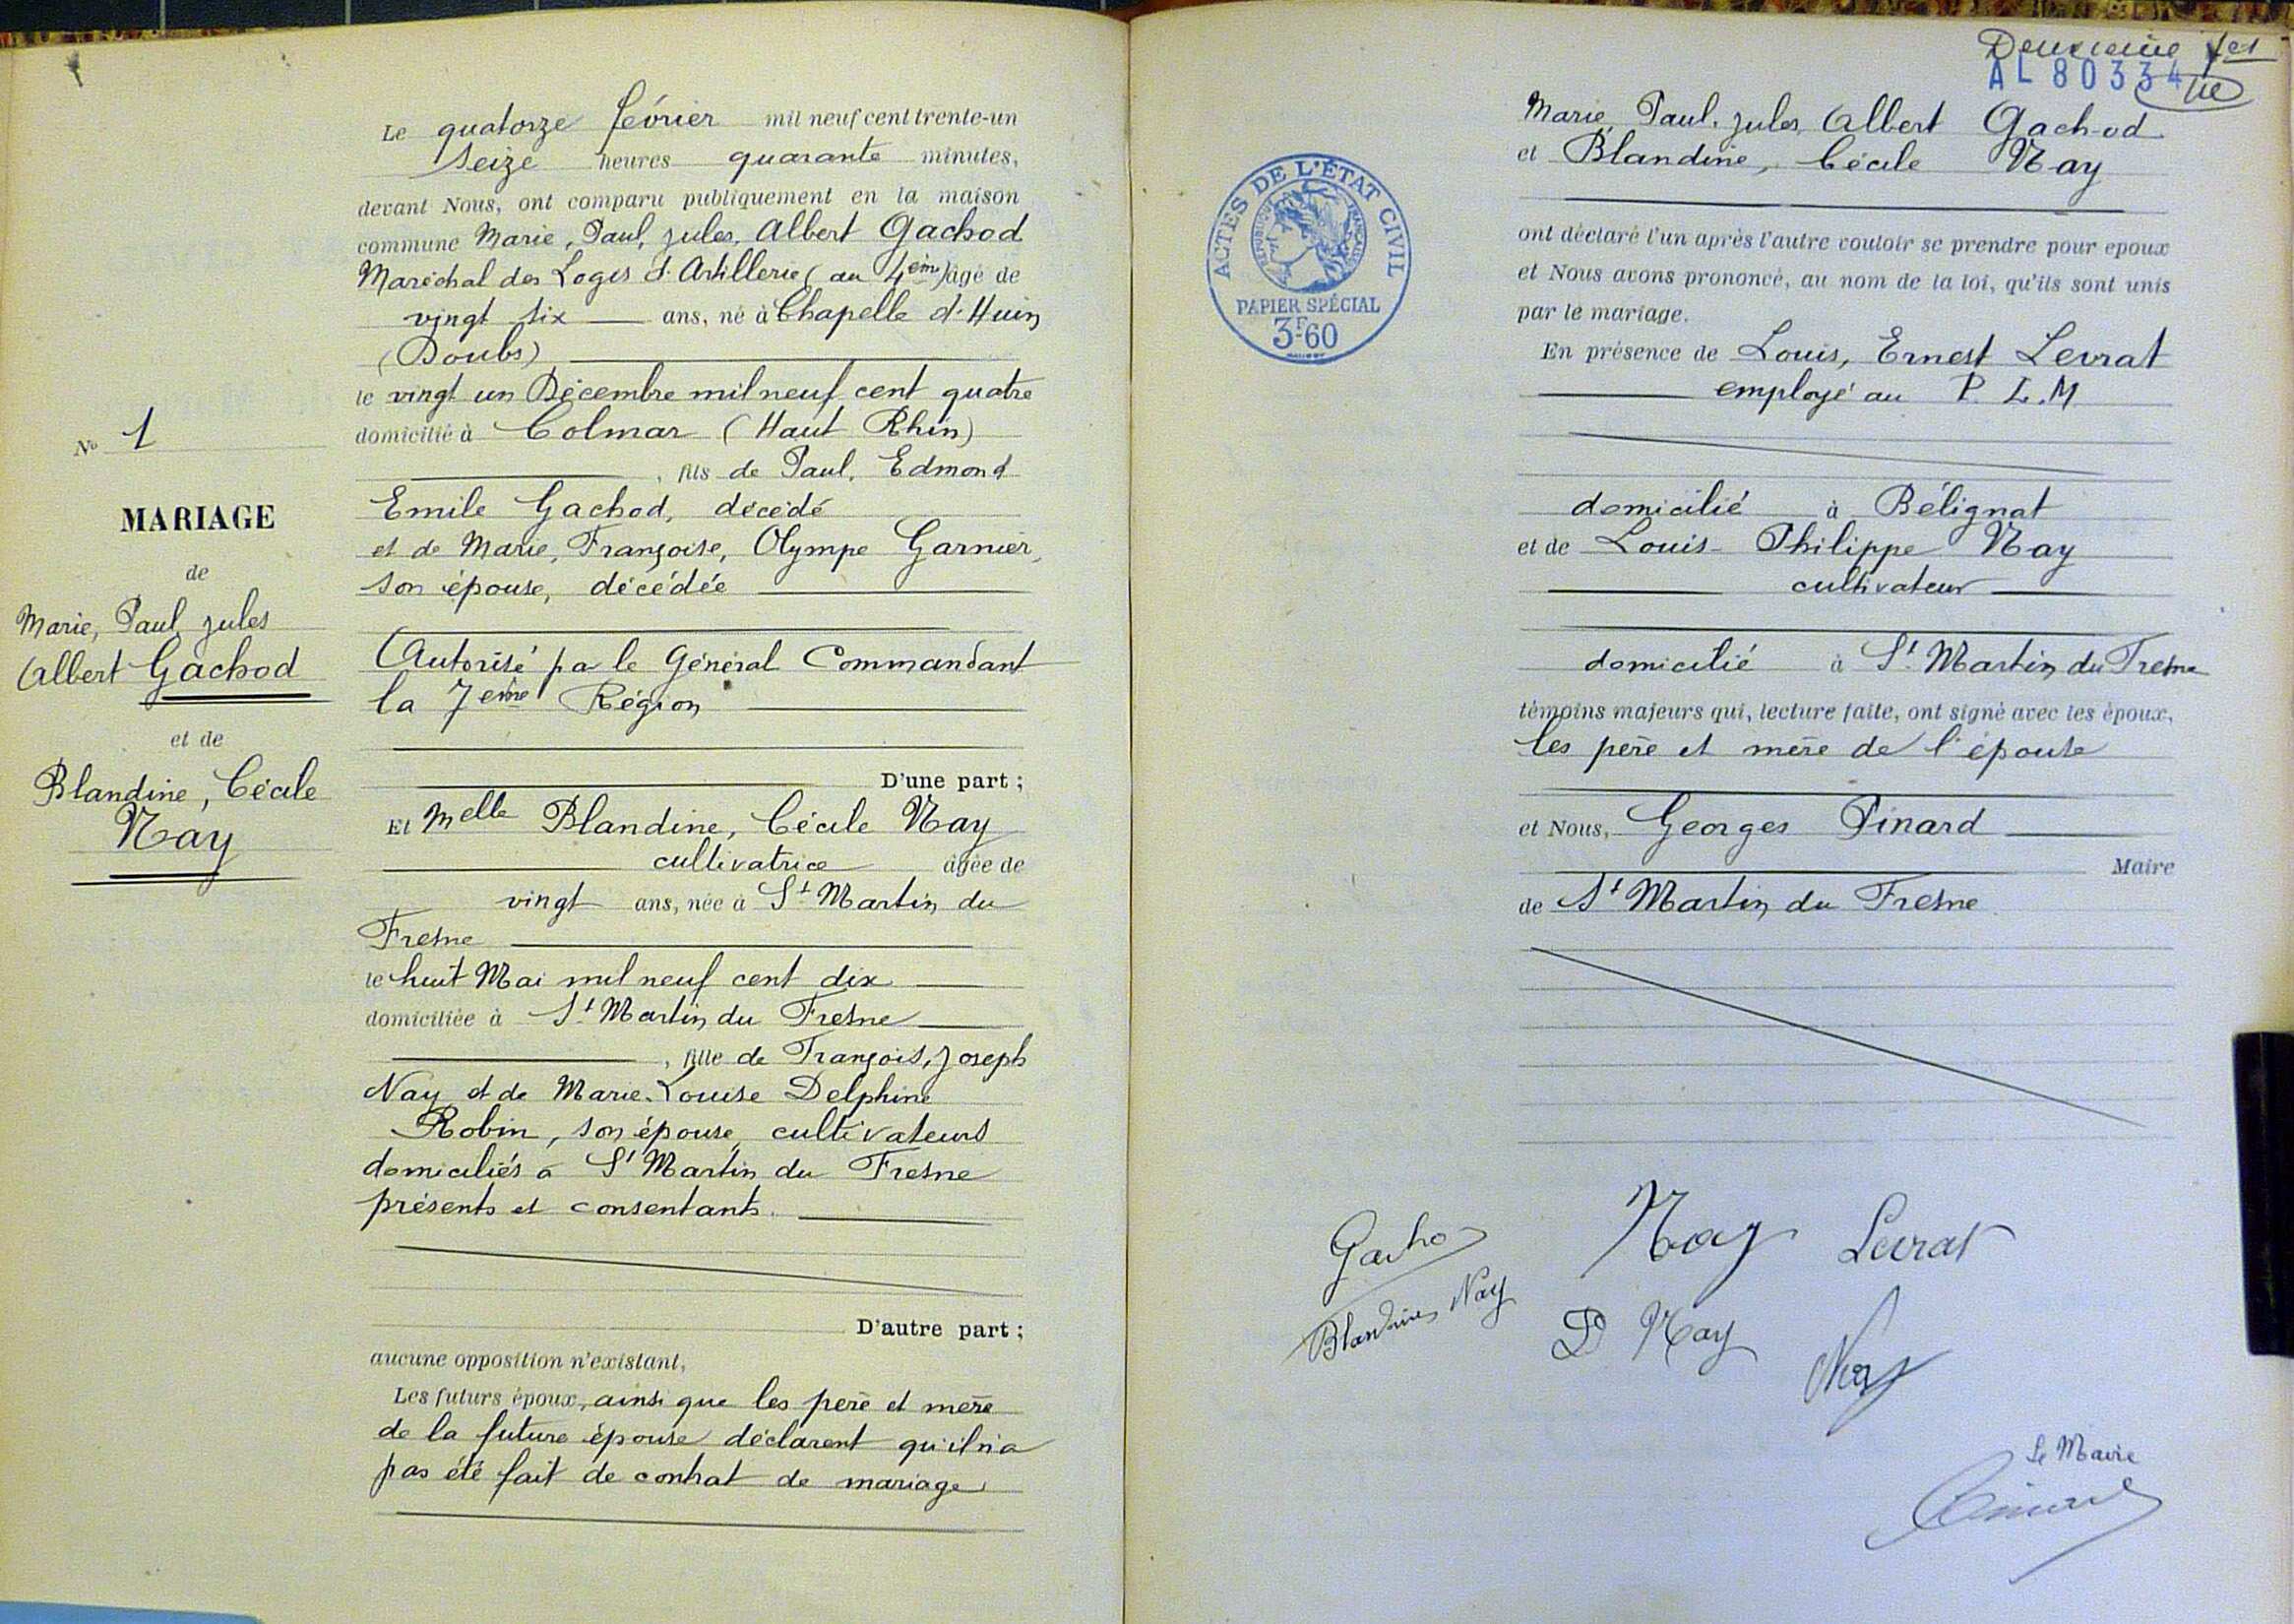 Le quatorze février mil neuf cent trente-un
seize heures quarante minutes,
devant Nous, ont comparu publiquement en la maison
commune Marie, Paul, Jules, Albert Gachod
Maréchal des Logis d'Artillerie (au 4ème) âgé de
vingt six ans, né à Chapelle d'Huin
(Doubs)
le vingt un Décembre mil neuf cent quatre
domicilié à Colmar (Haut Rhin)
, fils de Paul, Edmond
Emile Gachod, décédé
et de Marie, Françoise, Olympe Garnier,
son épouse, décédée
Autorisé par le Général Commandant
la 7ème Région
D'une part ;
Et Melle Blandine, Cécile Nay
cultivatrice âgée de
vingt ans, née à St Martin du
Fresne
le huit Mai mil neuf cent dix
domiciliée à St Martin du Fresne
, fille de François, Joseph
Nay et de Marie-Louise Delphine
Robin, son épouse, cultivateurs
domiciliés à St Martin du Fresne
présents et consentants.
D'autre part ;
aucune opposition n'existant,
Les futurs époux, ainsi que les père et mère
de la future épouse déclarent qu'il n'a
pas été fait de contrat de mariage
N° 1
MARIAGE
de
Marie, Paul Jules
Albert Gachod
et de
Blandine, Cécile
Nay
Deuxième
AL 80334
Marie, Paul, Jules, Albert Gachod
et Blandine, Cécile Nay
ont déclaré l'un après l'autre vouloir se prendre pour époux
et Nous avons prononcé, au nom de la loi, qu'ils sont unis
par le mariage.
En présence de Louis, Ernest Levrat
employé au P. L. M
domicilié à Bélignat
et de Louis-Philippe Nay
cultivateur
domicilié à St Martin du Fresne
témoins majeurs qui, lecture faite, ont signé avec les époux,
les père et mère de l'épouse
et Nous, Georges Pinard
Maire
de St Martin du Fresne
ACTES DE L'ÉTAT CIVIL
RÉPUBLIQUE FRANÇAISE
PAPIER SPÉCIAL
3F60
Gachod
Nay
Levrat
Blandine Nay
D Nay
Nay
Le Maire
Pinard